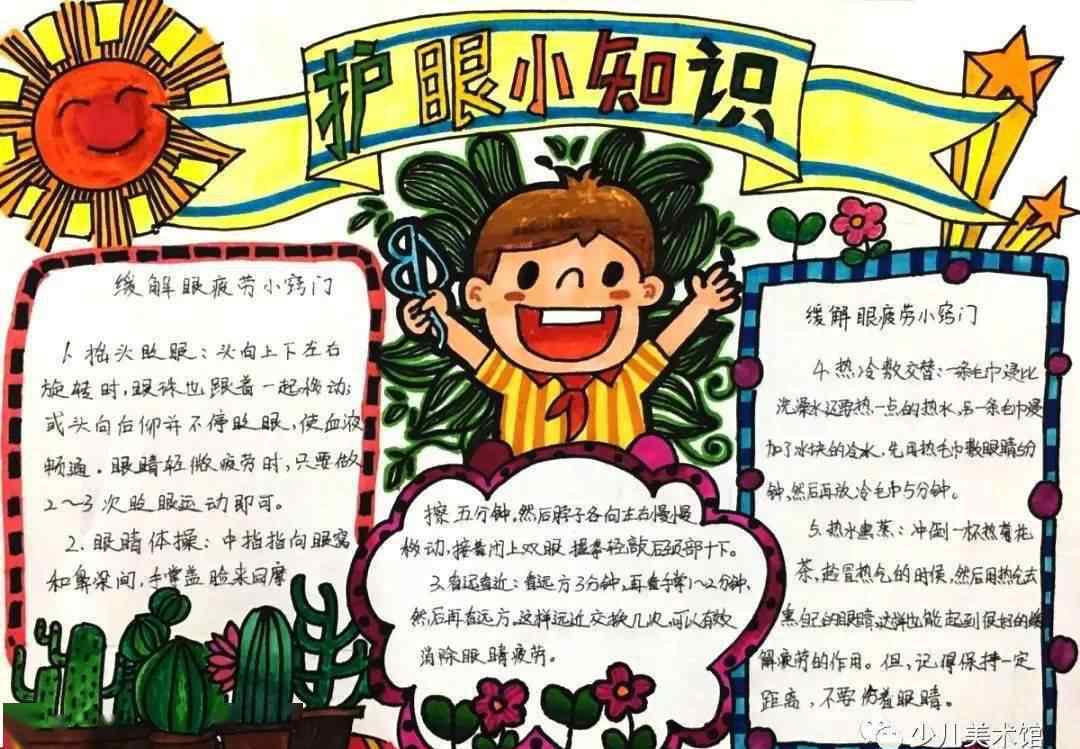 护眼小知识
缓解眼疲劳小窍门
1. 抬头眨眼：头向上下左右
旋转时，眼珠也跟着一起移动；
或头向后仰并不停眨眼，使血液
畅通。眼睛轻微疲劳时，只要做
2~3次眨眼运动即可。
2. 眼睛体操：中指指向眼窝
和鼻梁间，手掌盖脸来回摩
擦五分钟。然后脖子各向左右慢慢
移动，接着闭上双眼，握拳轻敲后颈部十下。
3. 看远看近：看远方3分钟，再看手掌1~2分钟，
然后再看远方。这样远近交换几次，可以有效
消除眼睛疲劳。
缓解眼疲劳小窍门
4. 热冷敷交替：一条毛巾浸比
洗澡水还要热一点的热水，另一条毛巾浸
加了冰块的冷水，先用热毛巾敷眼睛5分
钟，然后再放冷毛巾5分钟。
5. 热水熏蒸：冲倒一杯热菊花
茶，趁冒热气的时候，然后用热气去
熏自己的眼睛，这样也能起到很好的缓
解疲劳的作用。但，记得保持一定
距离，不要伤着眼睛。
少儿美术馆